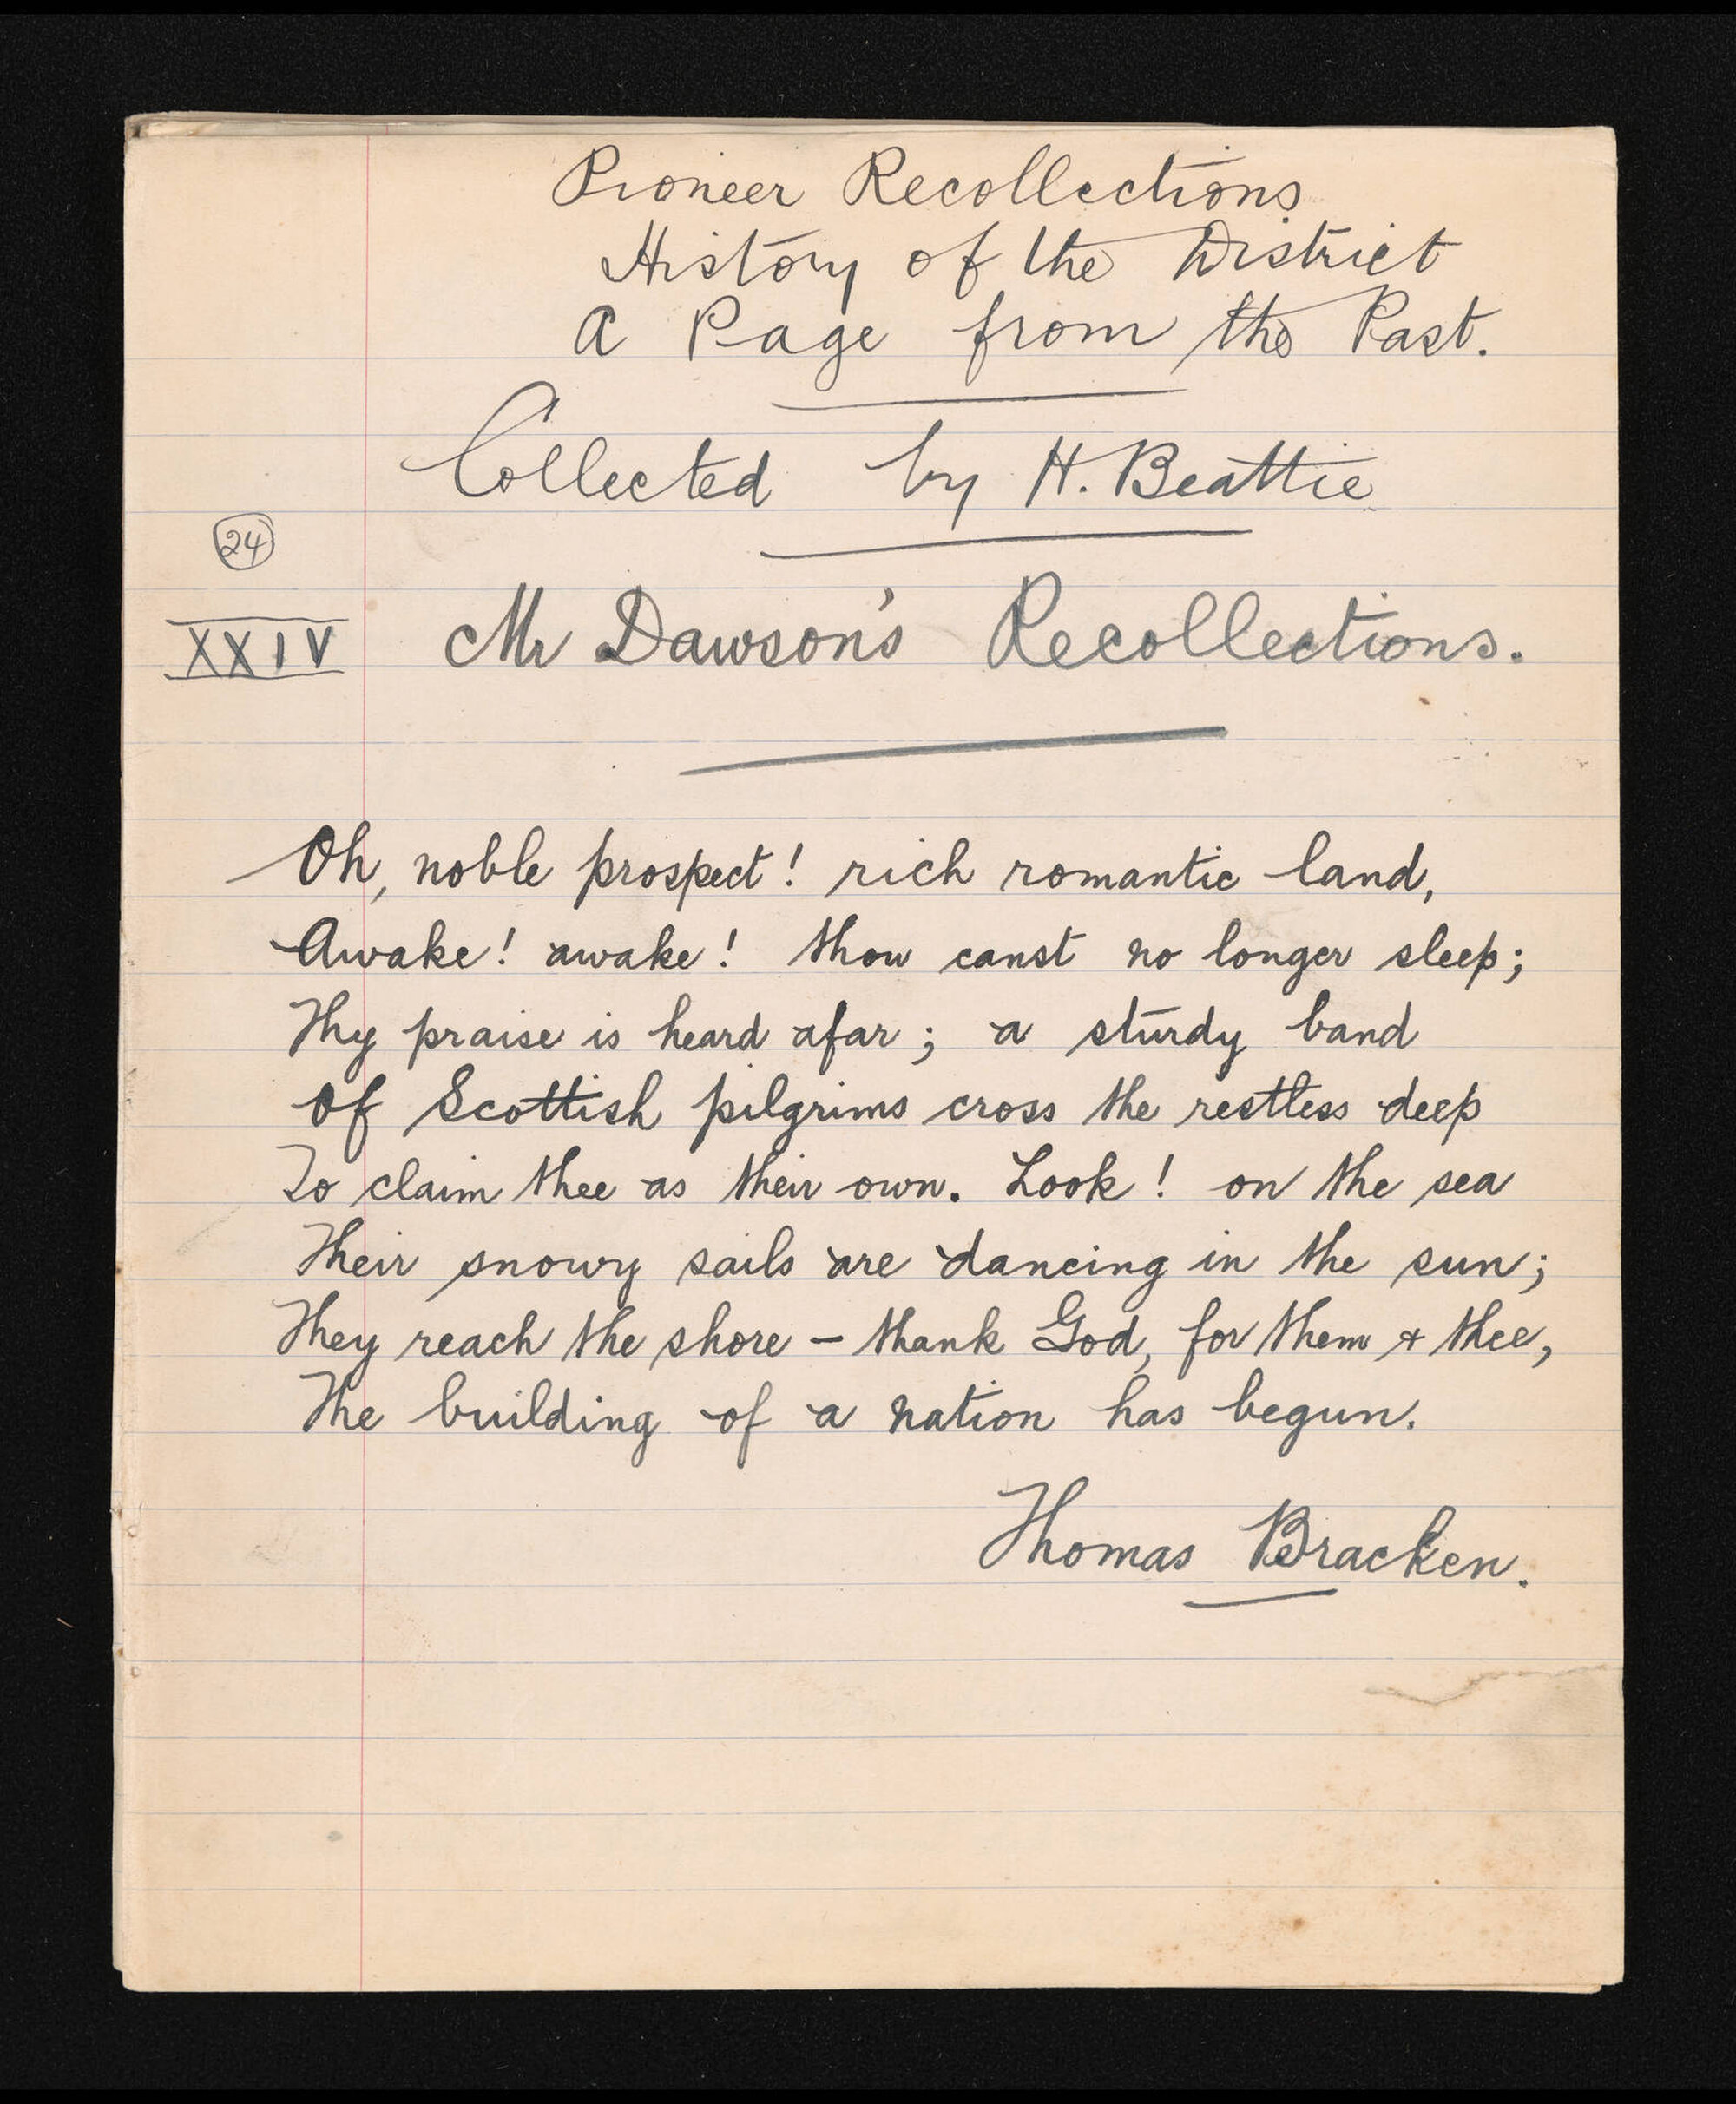 Pioneer Recollections
History of the District
A Page from the Past.
Collected by H. Beattie
24
XXIV Mr Dawson's Recollections.
Oh, noble prospect! rich romantic land,
Awake! awake! thou canst no longer sleep;
Thy praise is heard afar; a sturdy band
Of Scottish pilgrims cross the restless deep
To claim thee as their own. Look! on the sea
Their snowy sails are dancing in the sun;
They reach the shore – thank God, for them & thee,
The building of a nation has begun.
Thomas Bracken.